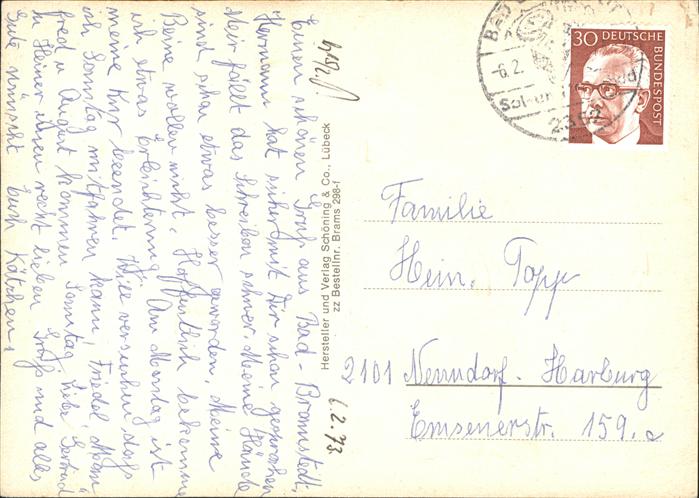 Einen schönen Gruß aus Bad-Bramstedt,
Hermann hat sicher mit Dir schon gesprochen
Mir fällt das Schreiben schwer. Meine Hände
sind schon etwas besser geworden. Meine
Beine wollen nicht. Hoffentlich bekomme
ich etwas Erleichterung. Am Montag ist
meine Kur beendet. Will versuchen daß
ich Sonntag mitfahren kann. Friedel, Mann
fred u August kommen Sonntag. Liebe Gertrud
u Heiner ihnen recht lieben Gruß und alles
Gute wünscht Euch Kätchen.
6.2.73
Hersteller und Verlag Schöning & Co., Lübeck
zz Bestellnr. Brams 298-f
BAD
6.2.
2352
30 DEUTSCHE
BUNDESPOST
Familie
Hein. Topp
2101 Nenndorf-Harburg
Emsenerstr. 159. a